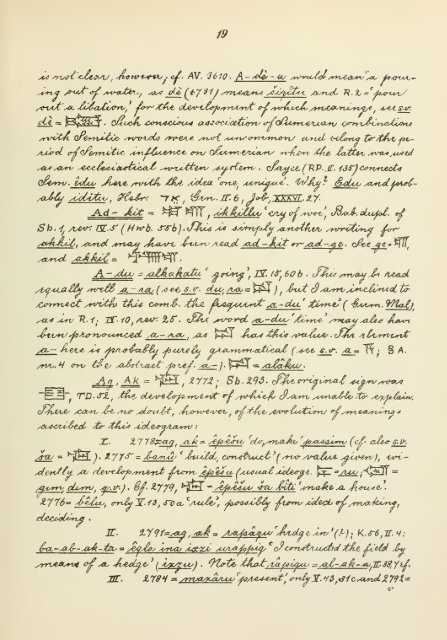 19
is not clear, however; cf. AV. 3610. A-dè-a would mean 'a pour-
ing out of water, as dè (6731) means šiqîtu and R.2 = 'pour
out a libation,' for the development of which meanings, see s.v.
dè = . Such conscious association of Sumerian combinations
with Semitic words were not uncommon and belong to the pe-
riod of Semitic influence on Sumerian when the latter was used
as an ecclesiastical written system. Sayce (RP. II. 135) connects
Sem. êdu here with the idea 'one, unique.' Why? Edu and prob-
ably iditu, Hebr. אד, Grn. II. 6, Job, XXXVI. 27.
Ad-kit = , ikkillu 'cry of woe', Bab. dupl. of
Sb. 1, rev. IV. 5 (Hwb. 55b). This is simply another writing for
akkil, and may have been read ad-kit or ad-ge. See ge = ,
and akkil = .
A-du = alkakatu 'going', IV. 15, 60b. This may be read
equally well a-ra (see s.v. du, ra = ), but I am inclined to
connect with this comb. the frequent a-du 'time' (Grrm. Mal),
as in R.1; IV. 10, rev. 25. The word a-du 'time' may also have
been pronounced a-ra, as has this value. The element
a- here is probably purely grammatical (see s.v. a = ; § A.
nr. 4 on the abstract pref. a-). = alâku.
Ag, Ak = , 2772; Sb. 293. The original sign was
, TD. 52, the development of which I am unable to explain.
There can be no doubt, however, of the evolution of meanings
ascribed to this ideogram:
I. 2778 = ag, ak = êpêšu 'do, make' passim (cf. also s.v.
ša = ). 2775 = banû 'build, construct' (no value given), evi-
dently a development from êpêšu (usual ideogr. = ru; =
gim, dim, q.v.). Cf. 2779, = êpêšu ša bîti 'make a house'.
2776 = bêlu, only V. 13, 50a 'rule', possibly from idea of making,
deciding.
II. 2791 = ag, ak = rapâqu 'hedge in' (?); K. 56, II. 4:
ba-ab-ak-ta = êqla ina iççi urappiq 'I constructed the field by
means of a hedge' (içzu). Note that râpiqu = al-ak-a, II. 38, 7 ef.
III. 2784 = maxâru 'present', only V. 43, 31c. and 2792 =